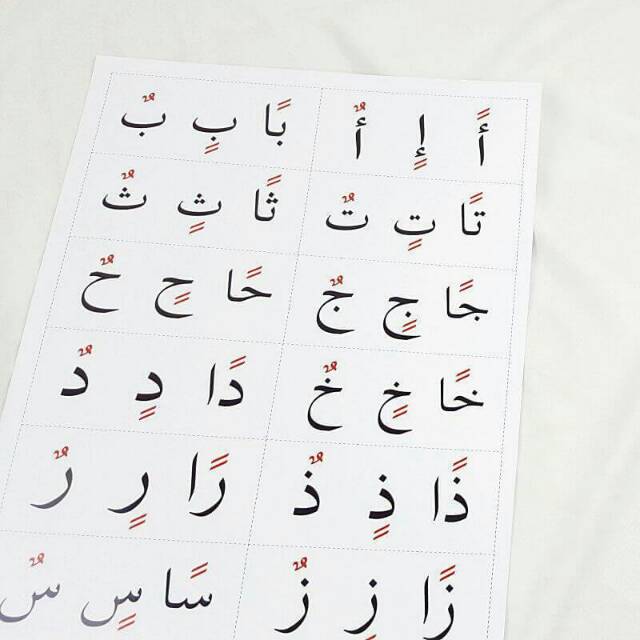 أً إٍ أٌ بًا بٍ بٌ
تًا تٍ تٌ ثًا ثٍ ثٌ
جًا جٍ جٌ حًا حٍ حٌ
خًا خٍ خٌ دًا دٍ دٌ
ذًا ذٍ ذٌ رًا رٍ رٌ
زًا زٍ زٌ سًا سٍ سٌ